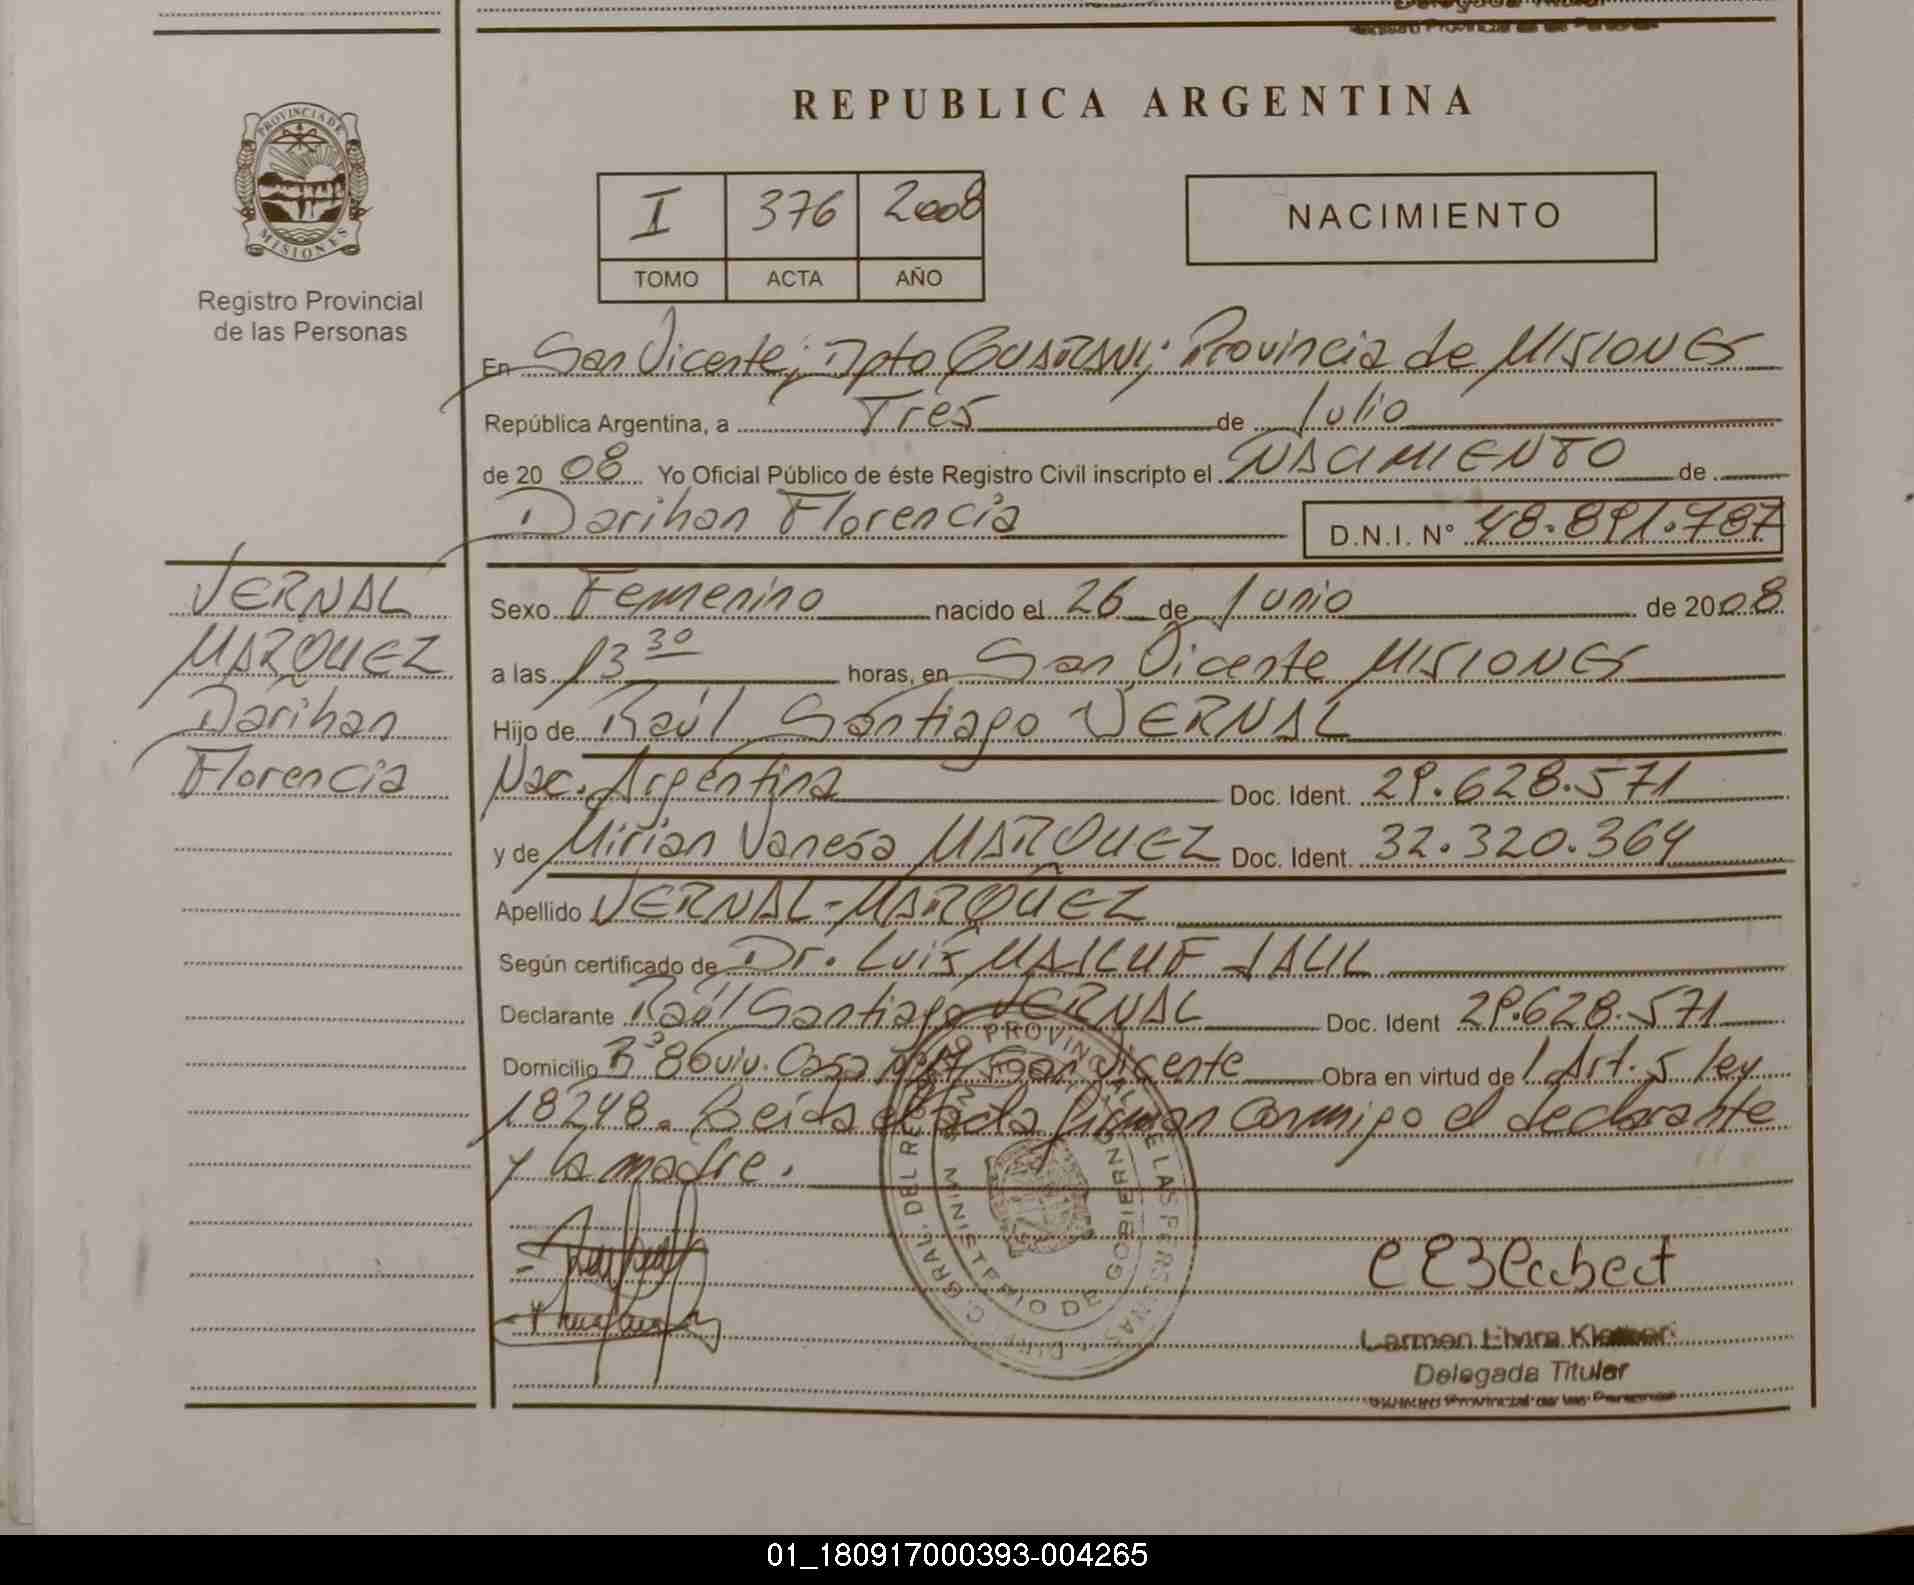 REPUBLICA ARGENTINA
PROVINCIA DE
MISIONES
Registro Provincial
de las Personas
I 376 2008
TOMO ACTA AÑO
NACIMIENTO
En San Vicente; Dpto GUARANI; Provincia de MISIONES
República Argentina, a Tres de Julio
de 2008 Yo Oficial Público de éste Registro Civil inscripto el NACIMIENTO de
Darihan Florencia D.N.I. N° 48.891.787
VERNAL
MARQUEZ
Darihan
Florencia
Sexo Femenino nacido el 26 de Junio de 2008
a las 13 30 horas, en San Vicente MISIONES
Hijo de Raúl Santiago VERNAL
Nac. Argentina Doc. Ident. 29.628.571
y de Mirian Vanesa MARQUEZ Doc. Ident. 32.320.364
Apellido VERNAL-MARQUEZ
Según certificado de Dr. Luis JALIL
Declarante Raúl Santiago VERNAL Doc. Ident 29.628.571
Domicilio B° 86 viv. Casa San Vicente Obra en virtud de Art. 5 ley
18248. Leida el acta firman conmigo el declarante
y la madre.
MINISTERIO DE GOBIERNO
Carmen Elvira
Delegada Titular
Registro Provincial de las Personas
01_180917000393-004265